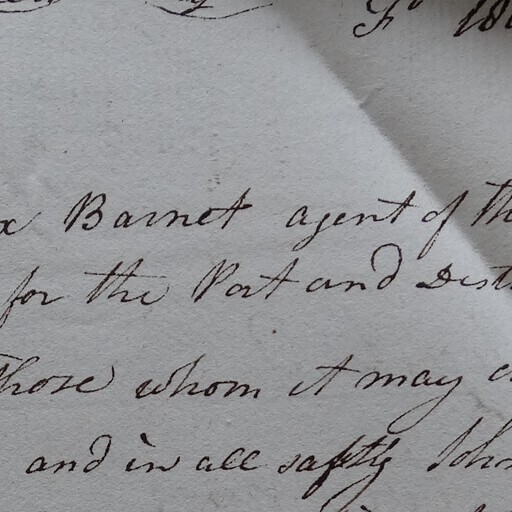 Barnet agent of th
for the Port and Dist
Those whom it may c
and in all safety John